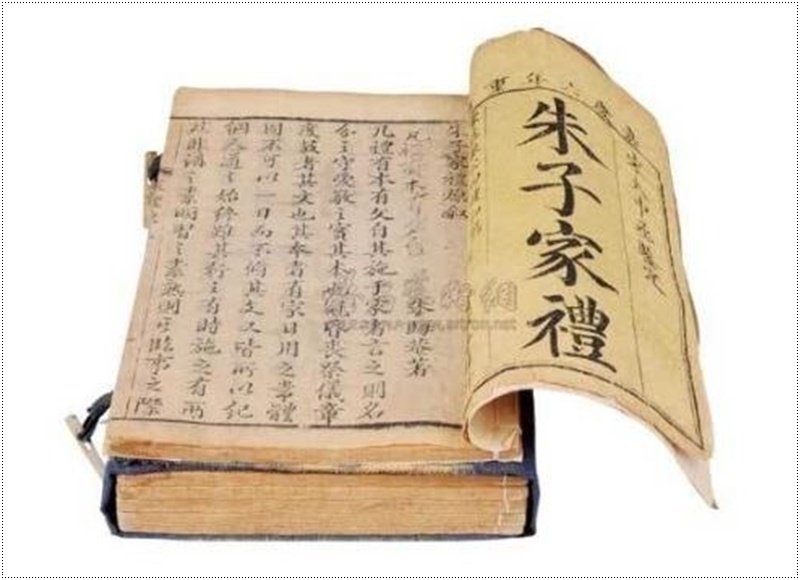 朱子家禮
朱子家禮原敘
朱晦菴著
凡禮有本有文自其施于家者言之則名
分之守愛敬之實其本也冠昏喪祭儀章
度數者其文也其本者有家日用之常體
固不可以一日而不脩其文又皆所以紀
綱人道之始終雖其行之有時施之有所
然非講之素明習之素熟則其臨事之際